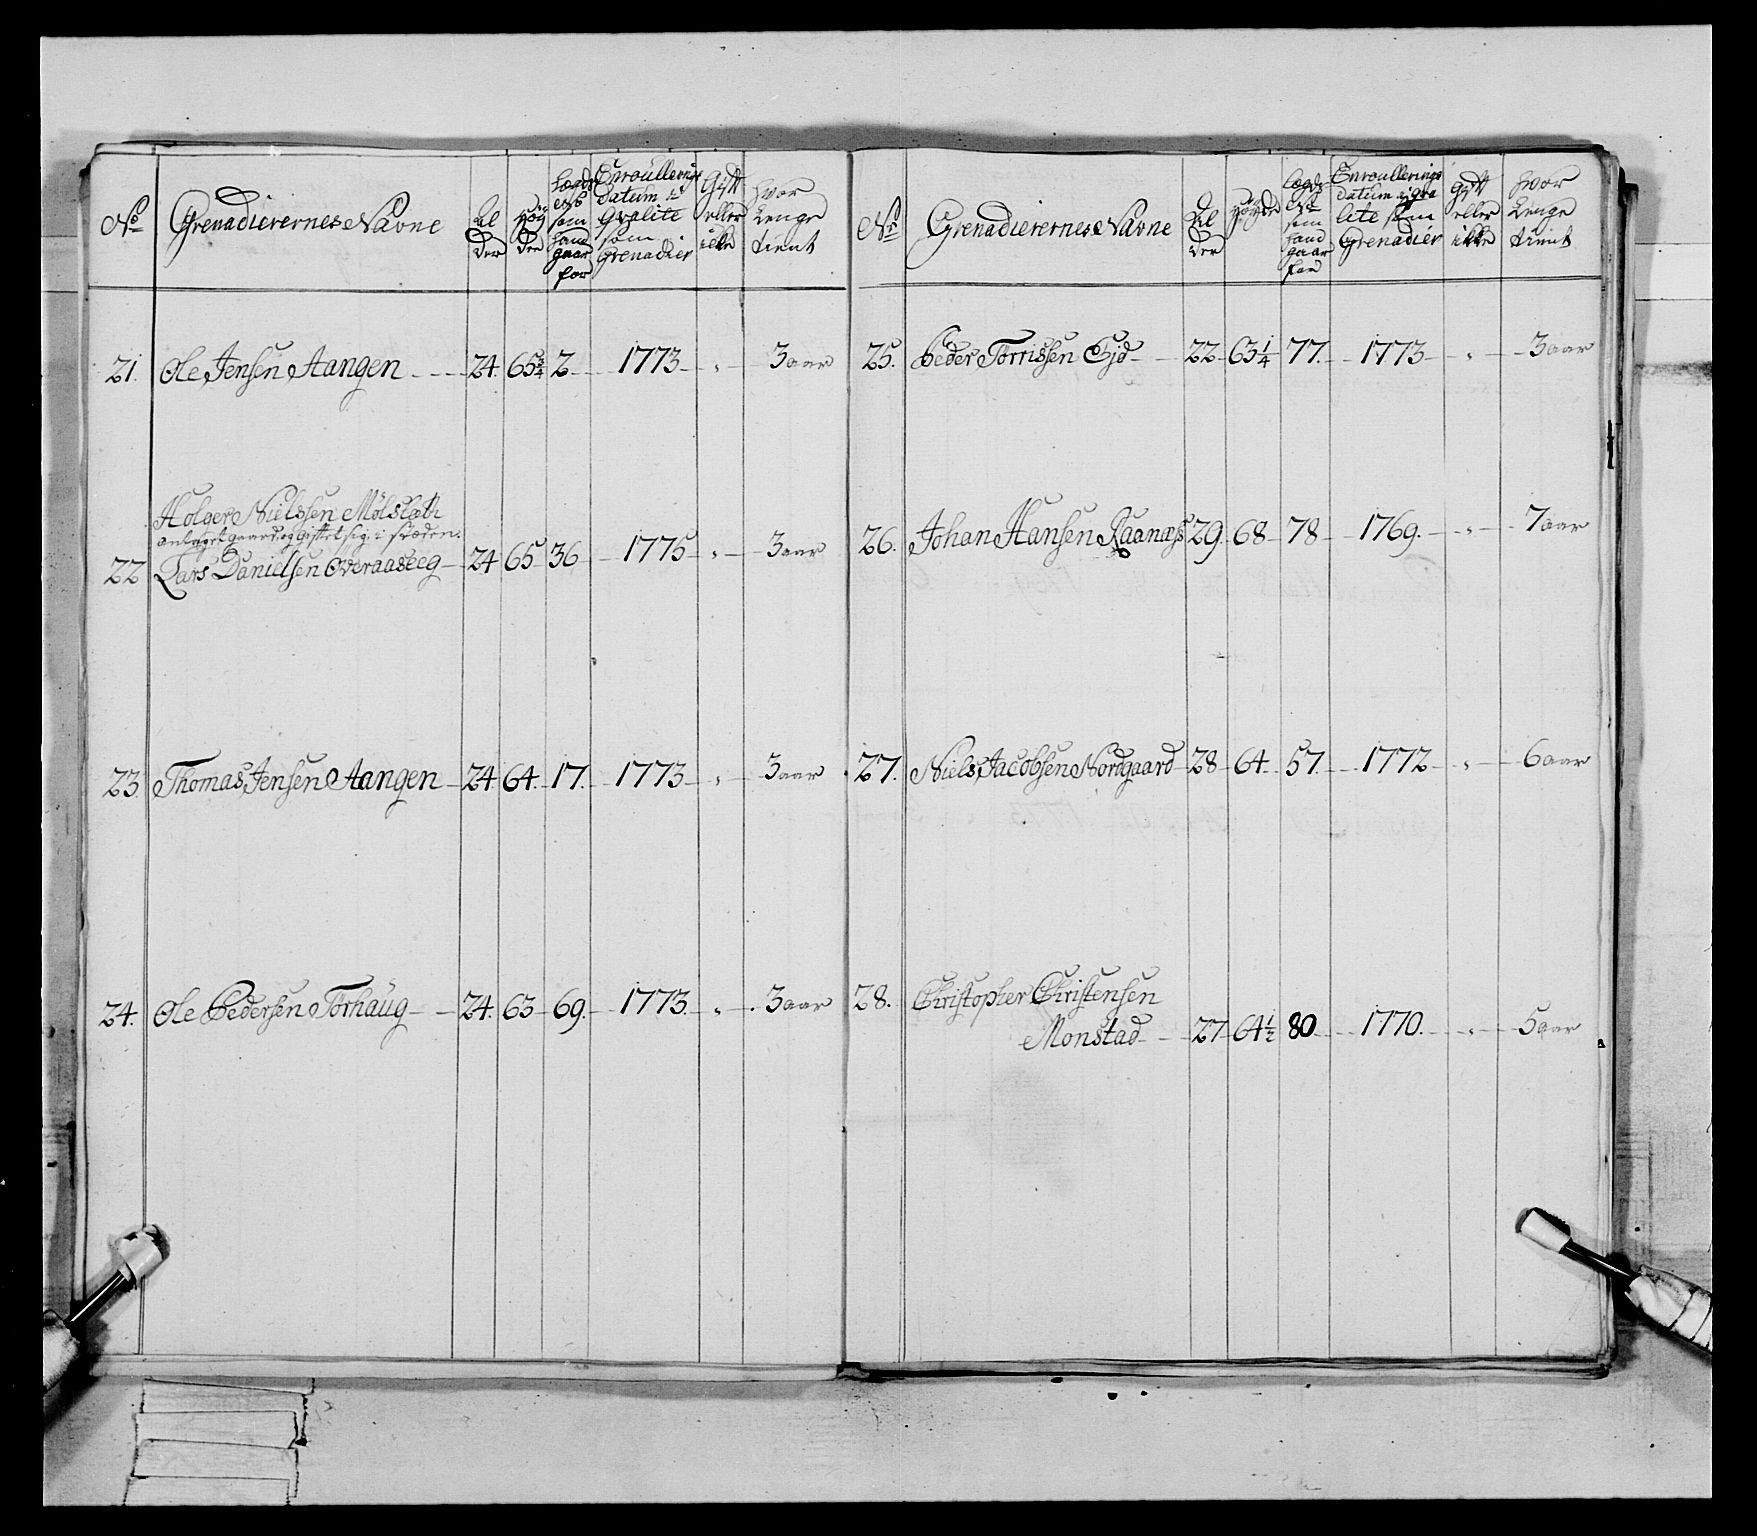 No Grenadierernes Navne Al der Høy den Lægds No som hand gaar for Enroullerings datum i qvalite som Grenadier Gift eller ikke hvor Lenge tient
21. Ole Jensen Aangen 24. 65 3/4 2 1773 " 3 aar
Holger Nielssen Mølslæth
antaget gaard og giftet sig i stæden.
22 Lars Danielsen Overaaseeg 24 65 36 1775 " 3 aar
23. Thomas Jensen Aangen 24. 64. 17. 1773 " 3 aar
24. Ole Pedersen Torhaug 24. 63 69. 1773. " 3 aar
Nr Grenadierernes Navne Al der Høyde Lægds som hand gaar for Enroullerings datum i qva lite som Grenadier Gift eller ikke hvor Lenge tient
25. Peder Torrissen Gjd 22 63 1/4 77. 1773 " 3 aar
26. Johan Hansen Raanæss 29. 68 78 1769. " 7 aar
27. Niels Jacobsen Nordgaard 28 64 57. 1772 " 6 aar
28. Christopher Christensen
Monstad 27 64 1/2 80 1770. " 5 aar